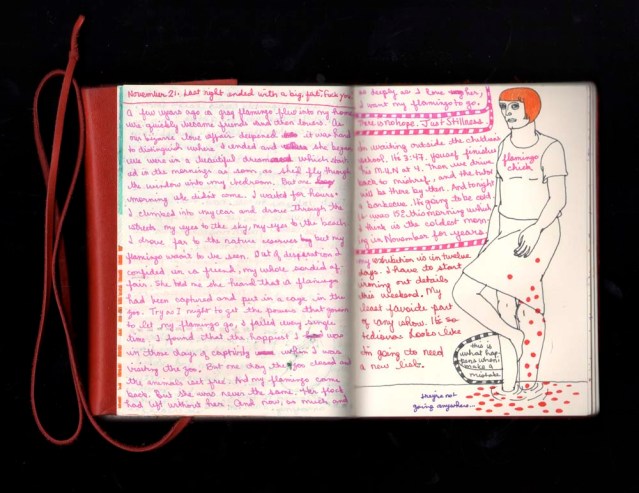 November 21. Last night ended with a big, fat, Fuck you.
A few years ago a gray flamingo flew into my home
we quickly became friends and then lovers. As
our bizarre love affair deepened it was hard
to distinguish where I ended and she began
we were in a beautiful dream which
ed in the mornings as soon as she'd fly through
the window into my bedroom. But one
morning she didn't come. I waited for hours.
I climbed into my car and drove through the
streets my eyes to the sky, my eyes to the
I drove far to the nature reserves but my
flamingo wasn't to be seen. Out of desperation I
confided in a friend, my whole sordid af-
fair. She told me she heard that a flamingo
had been captured and put in a cage in the
zoo. Try as I might to get the powers that govern
to let my flamingo go, I failed every single
time. I found that the happiest I was
in those days of captivity was when I was
visiting the zoo. But one day the zoo closed and
the animals set free. And my flamingo came
back. But she was never the same. Her
had left within her. And now, as much and
as deeply as I love her,
I want my flamingo to go.
There is no hope. Just stillness.
I'm waiting outside the childrens
school. It's 3:47, yousef finishes
his M.U.N at 4. Then we drive
back to mishref, and the tutor
will be there by then. And tonight
a barbecue. It's going to be cold
it was 5° this morning which
I think is the coldest morn-
ing in November for years.
my exhibition is in twelve
days. I have to start
ironing out details
this weekend. My
least favorite part
of any show. It's so
tedious. Looks like
I'm going to need
a new list.
flamingo
chick
this is
what hap-
pens when
makes a
mistake
they're not
going anywhere...